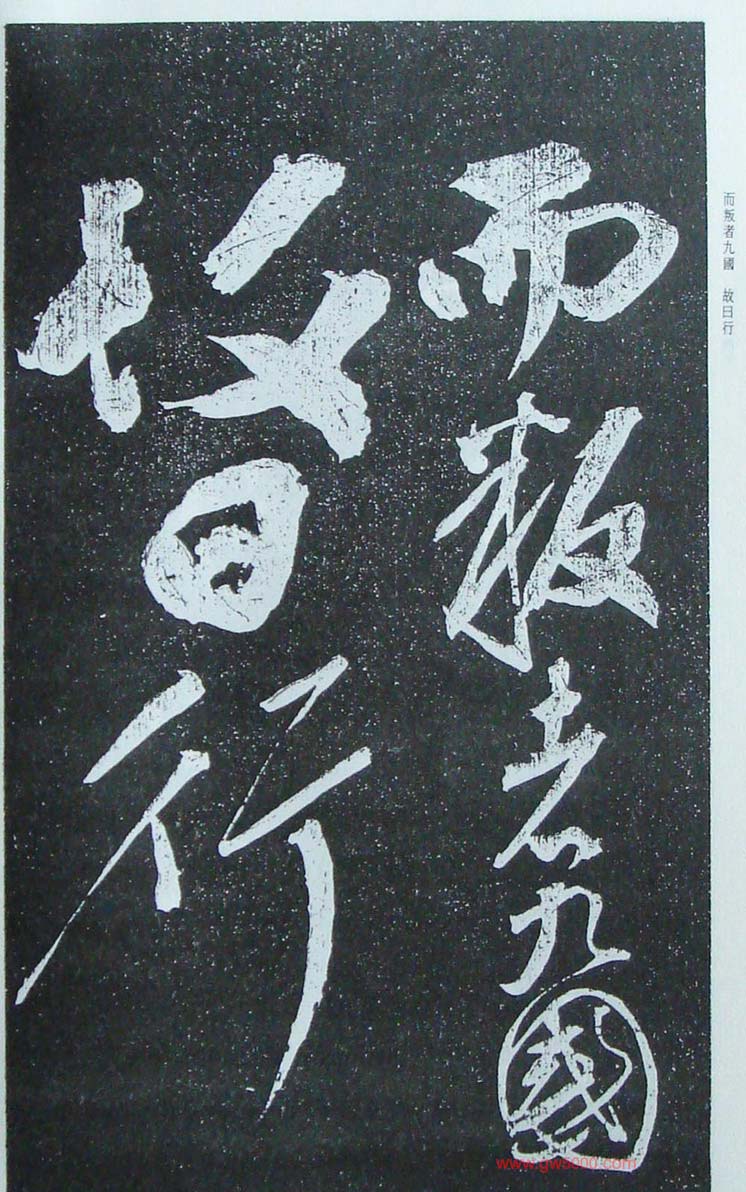 而叛者九國
故曰行
而叛者九國 故曰行
www.gw5000.com